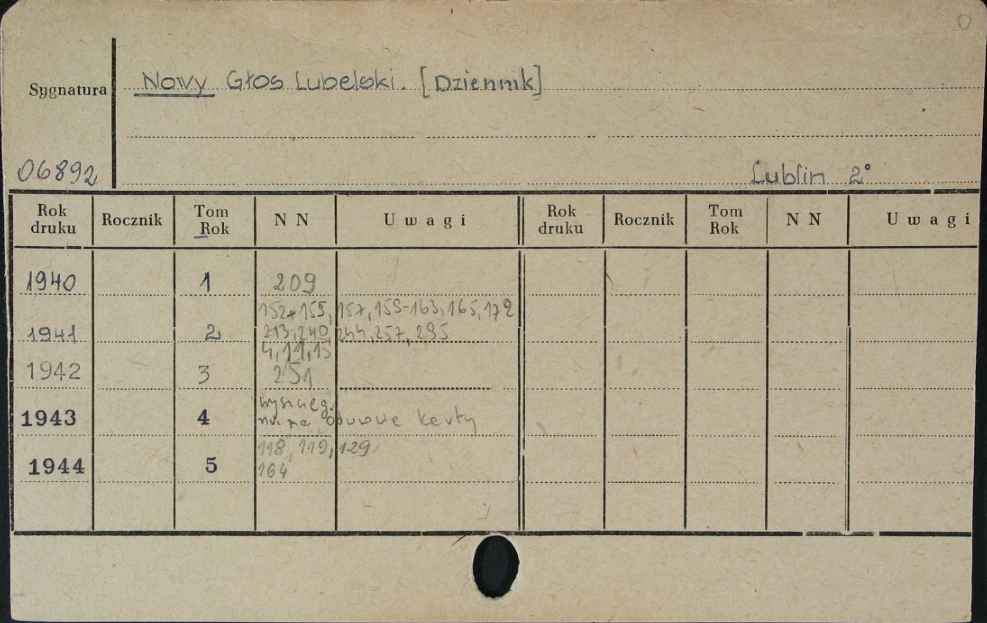 Sygnatura Nowy Głos Lubelski. [Dziennik]
06892 Lublin 2°
Rok druku Rocznik Tom Rok N N Uwagi Rok druku Rocznik Tom Rok N N Uwagi
1940 1 209
152, 155, 157, 159-163, 165, 172
1941 2 213, 240, 244, 257, 295
4, 11, 15
1942 3 251
1943 4 karty
118, 119, 129
1944 5 164